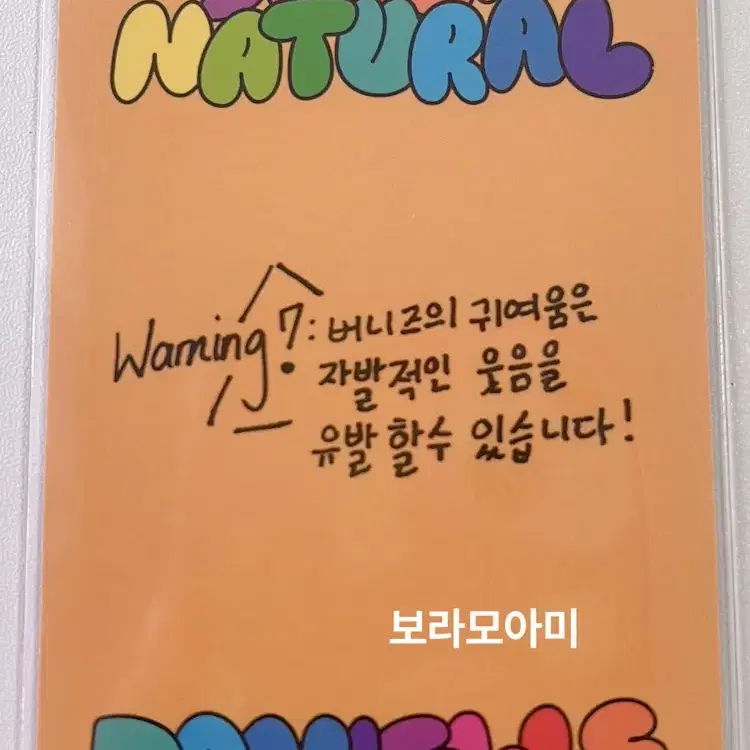 NATURAL
Warning!7: 버니즈의 귀여움은
자발적인 웃음을
유발할수 있습니다!
보라모아미